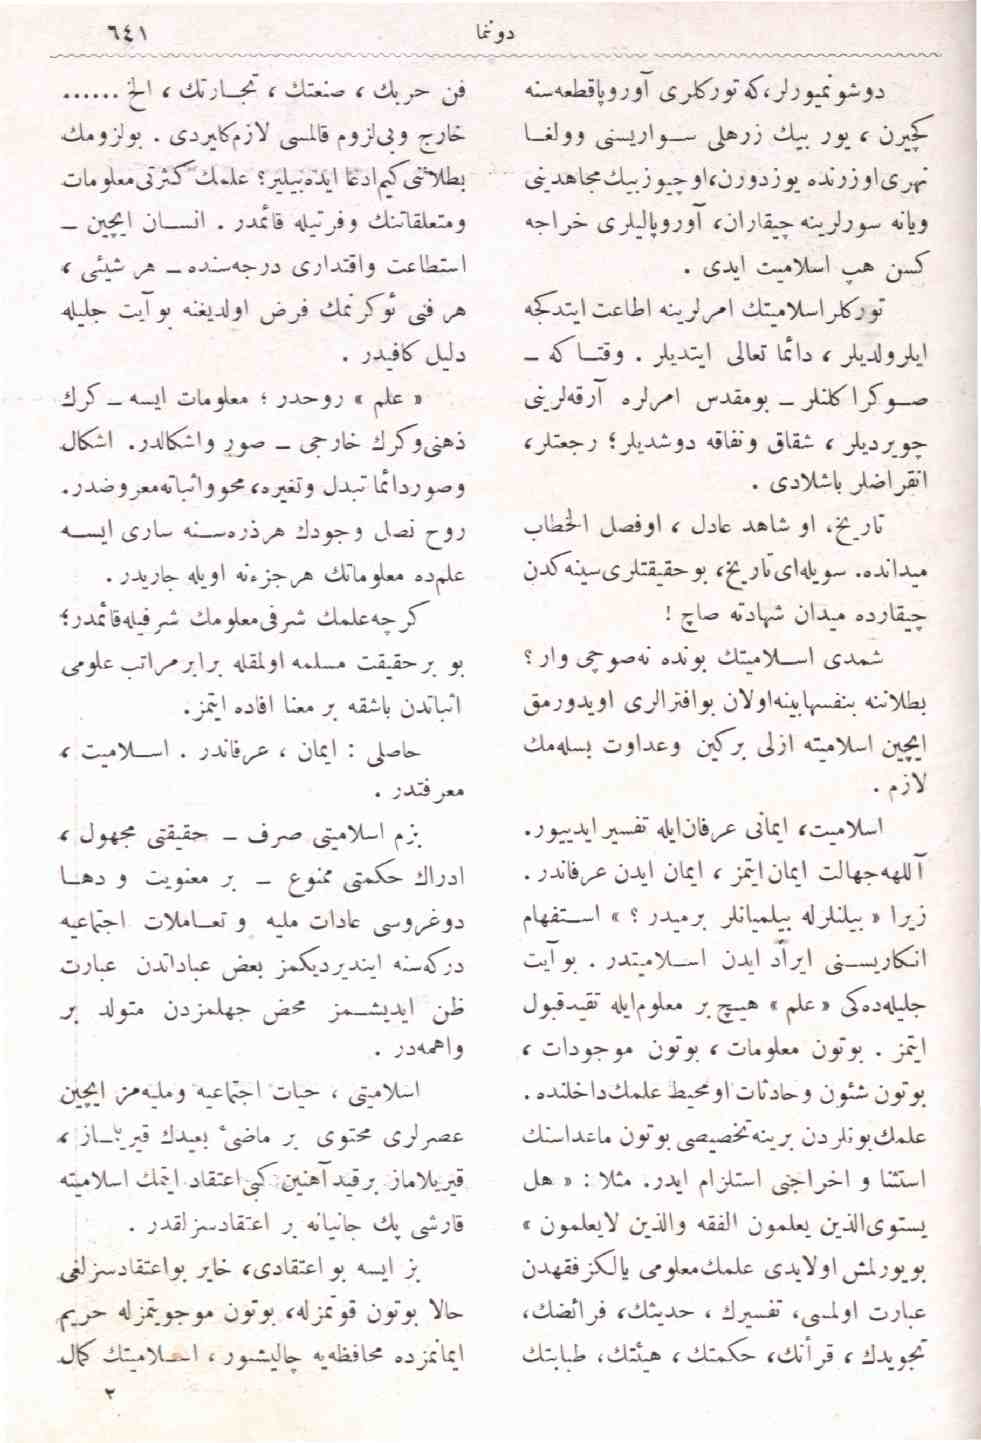 دوننما
٦٤١
دوشونمیورلر، که تورکلری آوروپا قطعه‌سنه
کچیرن ، یوز بیك زرهلی سواریسنی وولغا
نهری اوزرنده یوزدورن، اوچیوز بیك مجاهدینی
ویانه سورلرینه چیقاران، آوروپالیلری خراجه
کسن هپ اسلامیت ایدی .
تورکلر اسلامیتك امرلرینه اطاعت ایتدکجه
ایلرولدیلر ، دائما تعالی ایتدیلر . وقتا که –
صوکرا کلنلر – بومقدس امرلره آرقه‌لرینی
چویردیلر ، شقاق ونفاقه دوشدیلر ؛ رجعتلر،
انقراضلر باشلادی .
تاریخ، او شاهد عادل ، اوفصل الخطاب
میدانده. سویله‌ای تاریخ، بو حقیقتلری سینه کدن
چیقارده میدان شهادته صاچ !
شمدی اسلامیتك بونده نه‌صوچی وار ؟
بطلاننه بنفسها بینه‌اولان بوافترالری اویدورمق
ایچین اسلامیته ازلی برکین وعداوت بسله‌مك
لازم .
اسلامیت، ایمانی عرفان‌ایله تفسیر ایدییور.
آللهه جهالت ایمان ایتمز ، ایمان ایدن عرفاندر .
زیرا « بیلنلرله بیلمیانلر برمیدر ؟ » استفهام
انکاریسنی ایراد ایدن اسلامیتدر . بو آیت
جلیله‌ده‌کی « علم » هیچ بر معلوم‌ایله تقیدقبول
ایتمز . بوتون معلومات ، بوتون موجودات ،
بوتون شئون وحادثات اومحیط علمك داخلنده .
علمك بونلردن برینه تخصیصی بوتون ماعداسنك
استثنا و اخراجنی استلزام ایدر. مثلا : « هل
یستوی‌الذین یعلمون الفقه والذین لایعلمون »
بویورلمش اولایدی علمك معلومی یالکز فقهدن
عبارت اولمسی، تفسیرك ، حدیثك، فرائضك،
تجویدك ، قرأنك، حکمتك ، هیئتك، طبابتك
فن حربك ، صنعتك ، تجارتك ، الخ ......
خارج وبی‌لزوم قالمسی لازم‌کلیردی . بولزومك
بطلاننی کیم ادعا ایده‌بیلیر؟ علمك کثرتی معلومات
ومتعلقاتنك وفرتیله قائمدر . انسان ایچین –
استطاعت واقتداری درجه‌سنده – هر شیئی ،
هر فنی ئوکرنمك فرض اولدیغنه بوآیت جلیله
دلیل کافیدر .
« علم » روحدر ؛ معلومات ایسه – کرك
ذهنی وکرك خارجی – صور واشکالدر. اشکال
وصوردائما تبدل وتغیره، محوواثباته‌معروضدر.
روح نصل وجودك هرذره‌سنه ساری ایسه
علم‌ده معلوماتك هرجزءنه اویله جاریدر .
کرچه علمك شرفی معلومك شرفیله قائمدر؛
بو بر حقیقت مسلمه اولمقله برابر مراتب علومی
اثباتدن باشقه بر معنا افاده ایتمز.
حاصلی : ایمان ، عرفاندر . اسلامیت ،
معرفتدر .
بزم اسلامیتی صرف – حقیقتی مجهول ،
ادراك حکمتی ممنوع – بر معنویت و دها
دوغروسی عادات ملیه و تعاملات اجتماعیه
درکه‌سنه ایندیردیکمز بعض عباداتدن عبارت
ظن ایدیشمز محض جهلمزدن متولد بر
واهمه‌در .
اسلامیتی ، حیات اجتماعیه وملیه‌مز ایچین
عصرلری محتوی بر ماضئ بعیدك قیریلماز ،
قیریلاماز برقید آهنین کبی اعتقاد ایتمك اسلامیته
قارشی پك جانیانه بر اعتقادسزلقدر .
بز ایسه بو اعتقادی، خایر بو اعتقادسزلغی
حالا بوتون قوتمزله، بوتون موجویتمزله حریم
ایمانمزده محافظه‌یه چالیشیور، اسلامیتك کمال
٢